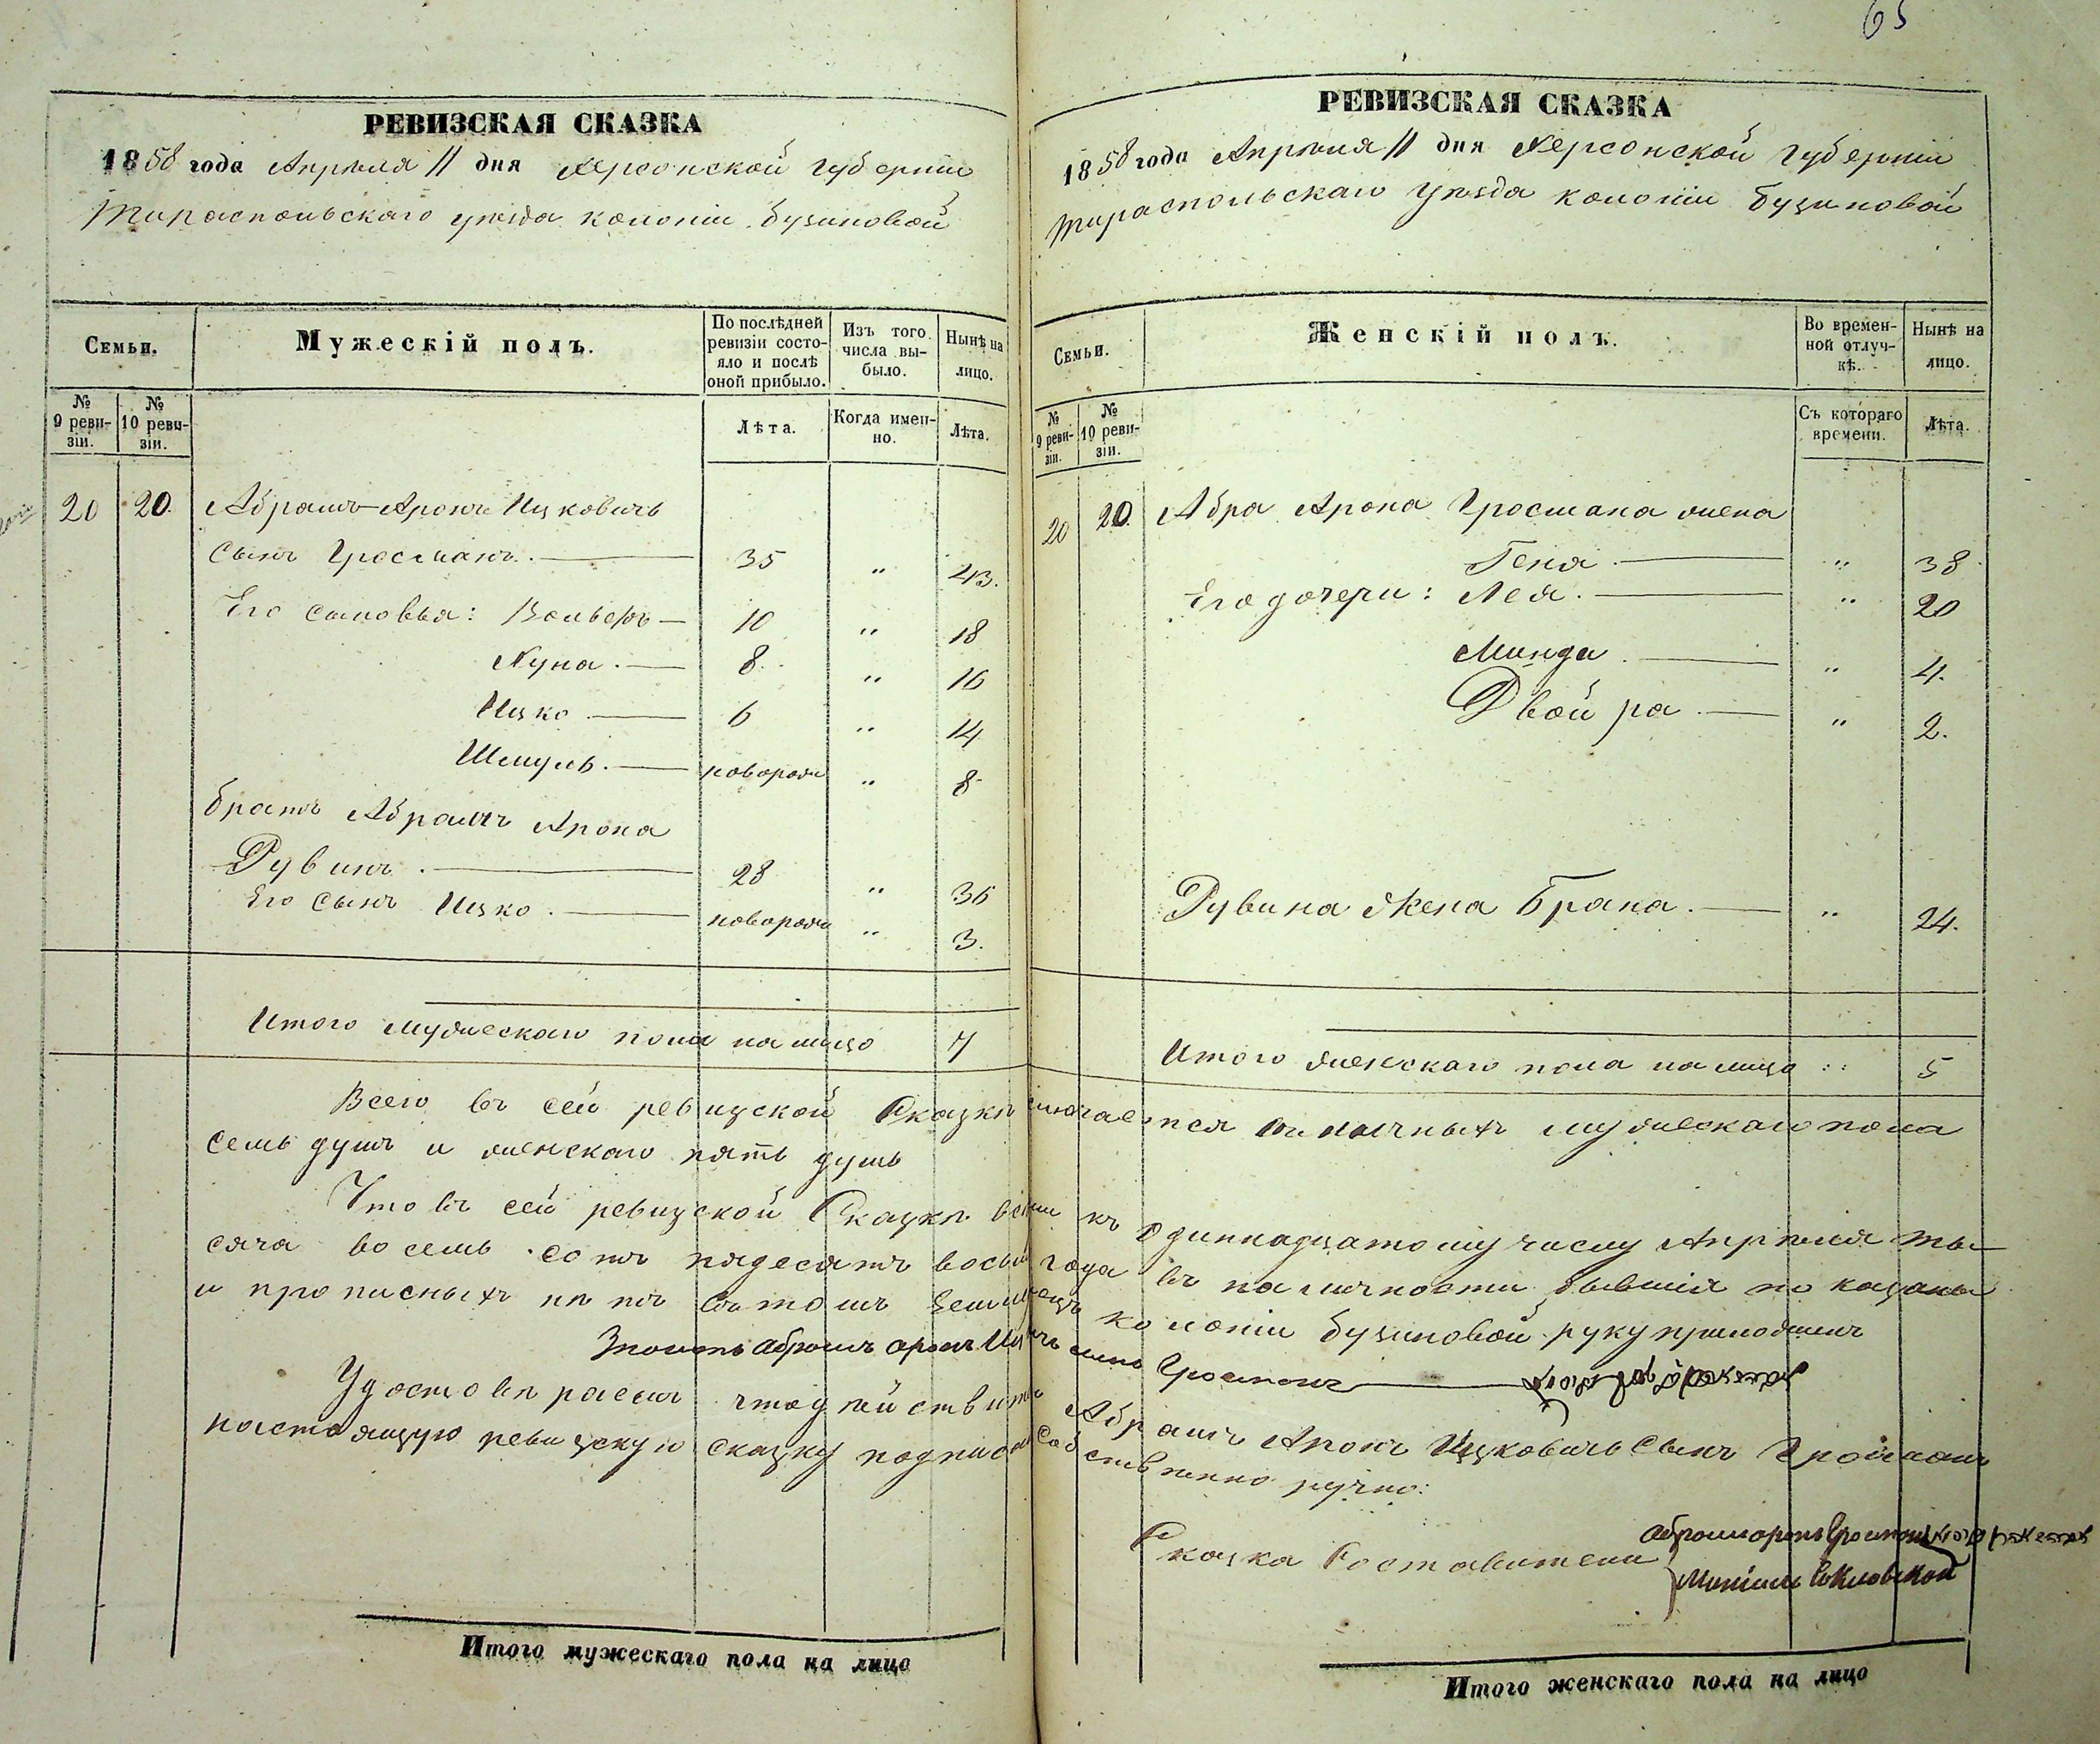 65
РЕВИЗСКАЯ СКАЗКА
1858 года Апрѣля 11 дня Херсонской губерніи
Тираспольскаго уѣзда колоніи Буциновой
Семьи.
Мужескій полъ.
По послѣдней ревизіи состояло и послѣ оной прибыло.
Изъ того числа выбыло.
Нынѣ на лицо.
№ 9 ревизіи.
№ 10 ревизіи.
Лѣта.
Когда именно.
Лѣта.
20 20. Абрамъ-Аронъ Ицковичь
сынъ Гросманъ. 35 " 43.
Его сыновья: Вольфъ 10 " 18
Хуна. 8. " 16
Ицко 6 " 14
Шмуль. новорож " 8
братъ Абрамъ Арона
Рувинъ. 28 " 36
Его сынъ Ицко. новорож " 3.
Итого мужескаго пола на лицо 7
РЕВИЗСКАЯ СКАЗКА
1858 года Апрѣля 11 дня Херсонской губерніи
Тираспольскаго уѣзда колоніи Буциновой
Семьи.
Женскій полъ.
Во временной отлучкѣ.
Нынѣ на лицо.
№ 9 ревизіи.
№ 10 ревизіи.
Съ котораго времени.
Лѣта.
20 20. Абра Арона Гросмана жена
Геня. " 38
Его дочери: Лея. " 20
Минда. " 4.
Двойра. " 2.
Рувина жена Брана. " 24.
Итого женскаго пола на лицо 5
Всего въ сей ревизской Сказкѣ наличныхъ мужескаго пола
семь душъ и женскаго пять душь
Что въ сей ревизской Сказкѣ всѣ къ одиннадцатому числу Апрѣля ты-
сяча восемь сотъ пядесятъ восьм года въ наличности бывшія показаны
и прописныхъ нѣтъ въ томъ колоніи Буциновой руку приложилъ
Абрамъ Аронъ сынъ Гросманъ
Удостовѣряемъ что дѣйствит Абрамъ Аронъ Ицковичь сынъ Гросманъ
настоящую ревизскую сказку подписалъ собственно ручно:
Сказка Составители
Абрамъ Аронъ Гросманъ
Итого мужескаго пола на лицо
Итого женскаго пола на лицо